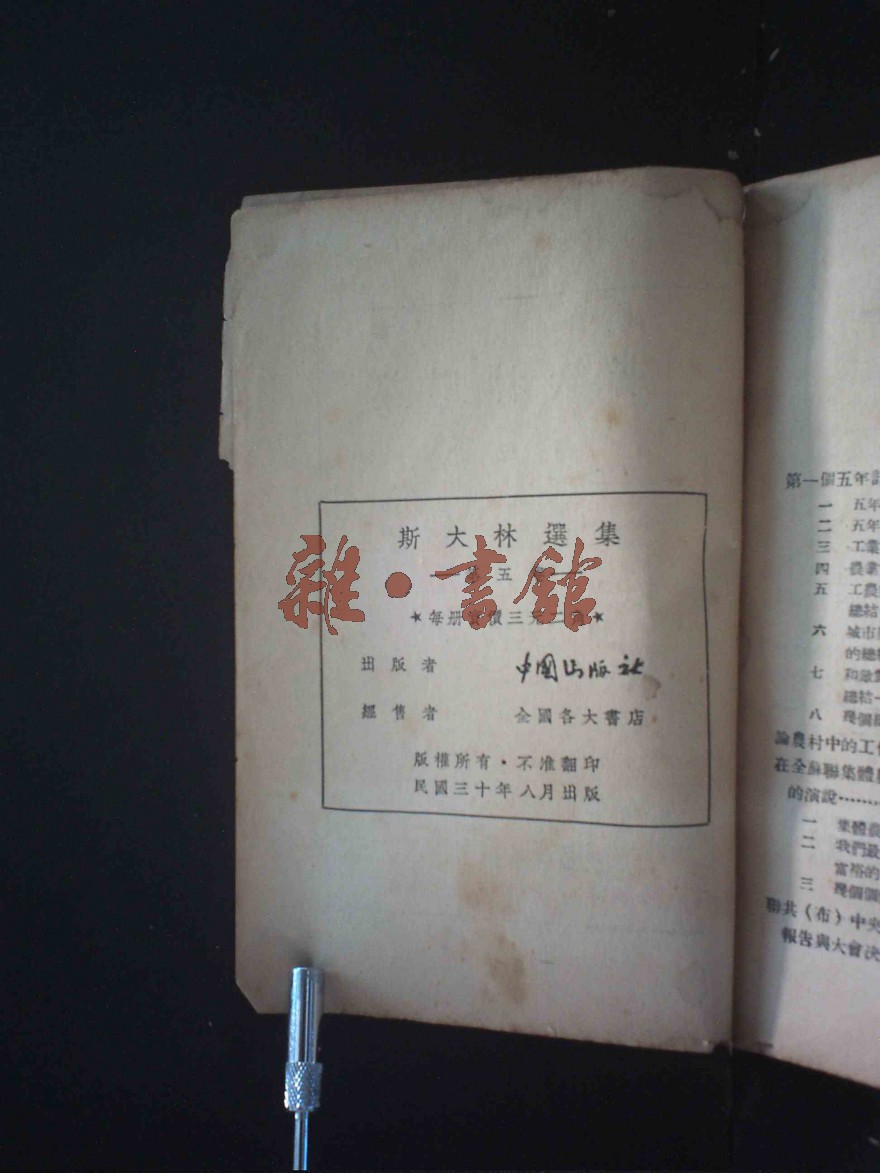 斯大林選集
五
★每册實價三元二角★
出版者 中國出版社
經售者 全國各大書店
版權所有·不准翻印
民國三十年八月出版
雜·書館
第一個五年計
一 五年
二 五年
三 工業
四 農業
五 工農
總結
六 城市
的總結
七 和敵
總結一
八 幾個
論農村中的工作
在全蘇聯集體農
的演說………
一 集體農
二 我們最
富裕的
三 幾個個
聯共(布)中央
報告與大會決